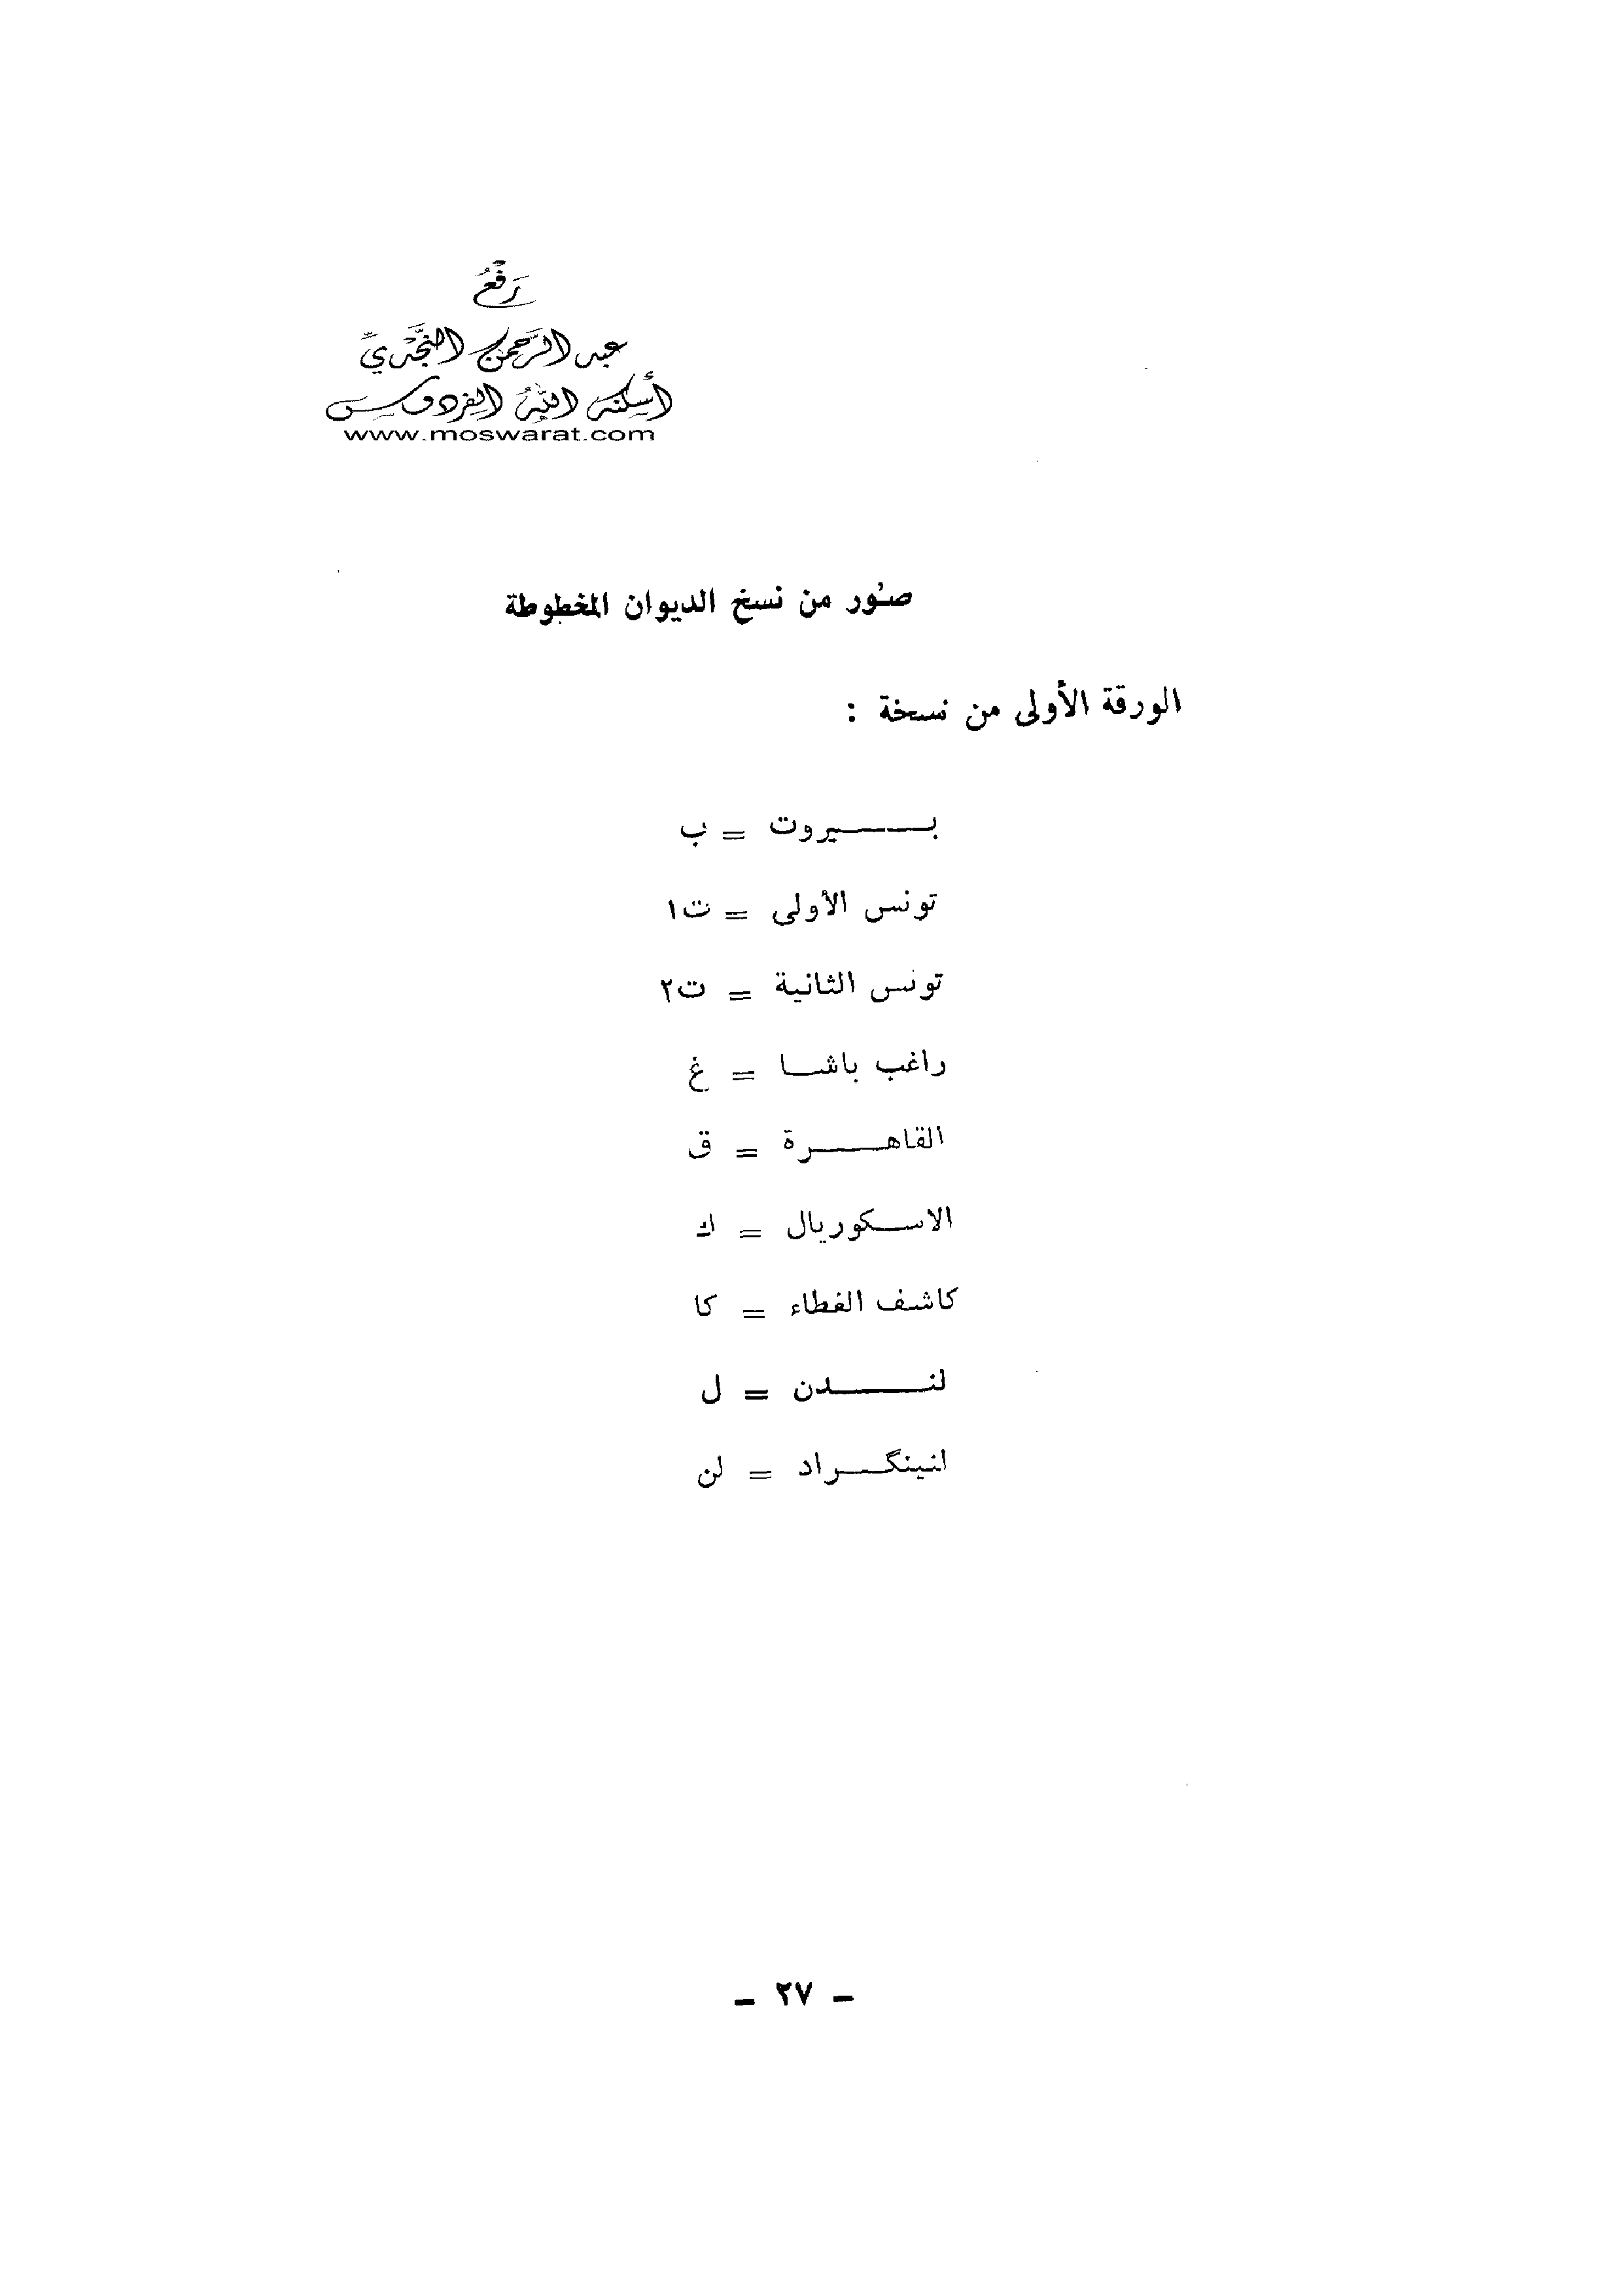 رَفْعُ
عبد الرَّحمن النَّجْديّ
أسكنه اللهُ الفردوس
www.moswarat.com
صُور من نسخ الديوان المخطوطة
الورقة الأولى من نسخة :
بـــــيروت = ب
تونس الأولى = ت١
تونس الثانية = ت٢
راغب باشــا = غ
القاهـــــرة = ق
الاســكوريال = ك
كاشف الغطاء = كا
لنـــــدن = ل
لنينگـــراد = لن
ـ ٢٧ ـ